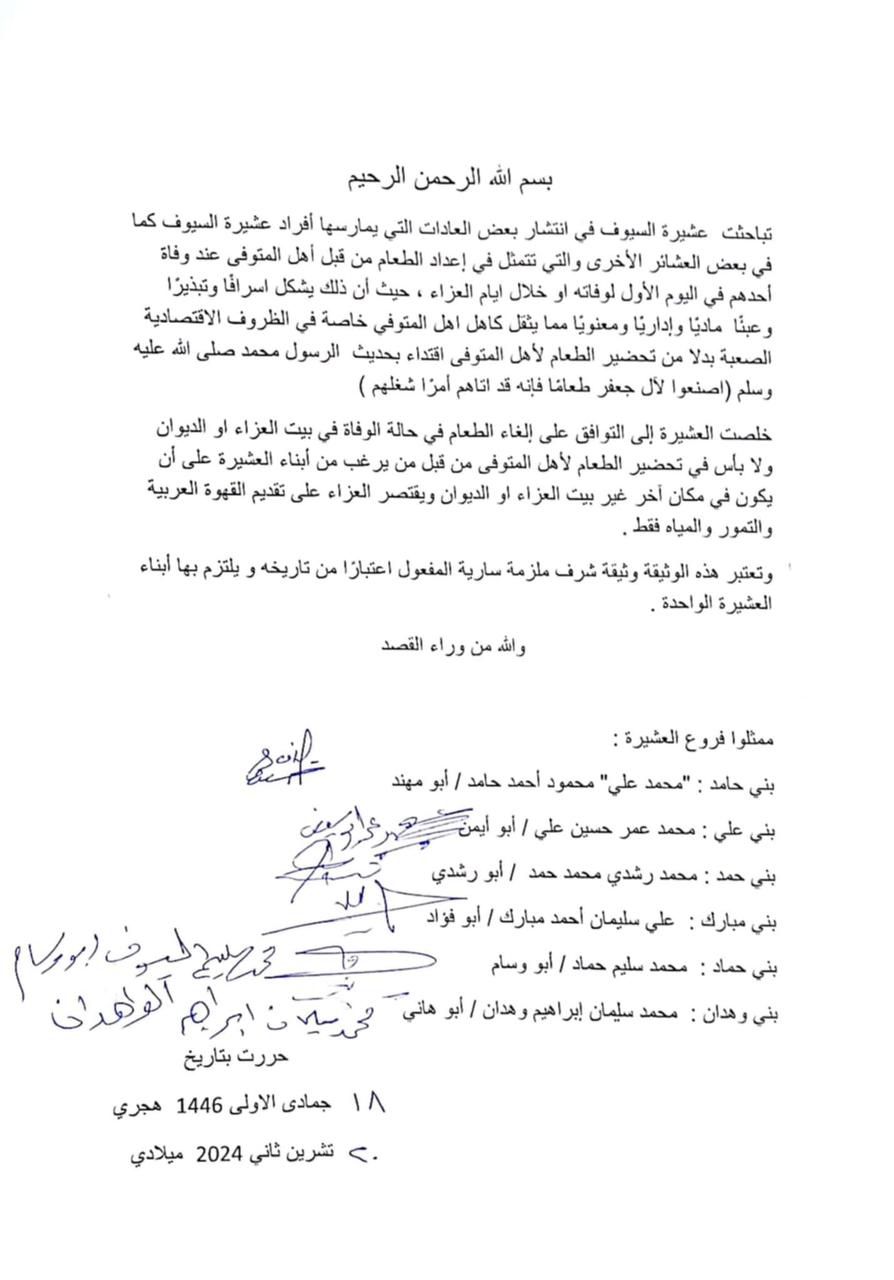 بسم الله الرحمن الرحيم
تباحثت عشيرة السيوف في انتشار بعض العادات التي يمارسها أفراد عشيرة السيوف كما
في بعض العشائر الأخرى والتي تتمثل في إعداد الطعام من قبل أهل المتوفى عند وفاة
أحدهم في اليوم الأول لوفاته او خلال ايام العزاء ، حيث أن ذلك يشكل اسرافًا وتبذيرًا
وعبئًا ماديًا وإداريًا ومعنويًا مما يثقل كاهل اهل المتوفي خاصة في الظروف الاقتصادية
الصعبة بدلا من تحضير الطعام لأهل المتوفى اقتداء بحديث الرسول محمد صلى الله عليه
وسلم (اصنعوا لآل جعفر طعامًا فإنه قد اتاهم أمرًا شغلهم )
خلصت العشيرة إلى التوافق على إلغاء الطعام في حالة الوفاة في بيت العزاء او الديوان
ولا بأس في تحضير الطعام لأهل المتوفى من قبل من يرغب من أبناء العشيرة على أن
يكون في مكان آخر غير بيت العزاء او الديوان ويقتصر العزاء على تقديم القهوة العربية
والتمور والمياه فقط .
وتعتبر هذه الوثيقة وثيقة شرف ملزمة سارية المفعول اعتبارًا من تاريخه و يلتزم بها أبناء
العشيرة الواحدة .
والله من وراء القصد
ممثلوا فروع العشيرة :
بني حامد : "محمد علي" محمود أحمد حامد / أبو مهند
بني علي : محمد عمر حسين علي / أبو أيمن
بني حمد : محمد رشدي محمد حمد / أبو رشدي
بني مبارك : علي سليمان أحمد مبارك / أبو فؤاد
بني حماد : محمد سليم حماد / أبو وسام محمد سليم السيوف ابو وسام
بني وهدان : محمد سليمان إبراهيم وهدان / أبو هاني محمد سليمان ابراهيم الوهدان
حررت بتاريخ
١٨ جمادى الاولى 1446 هجري
٢٠ تشرين ثاني 2024 ميلادي